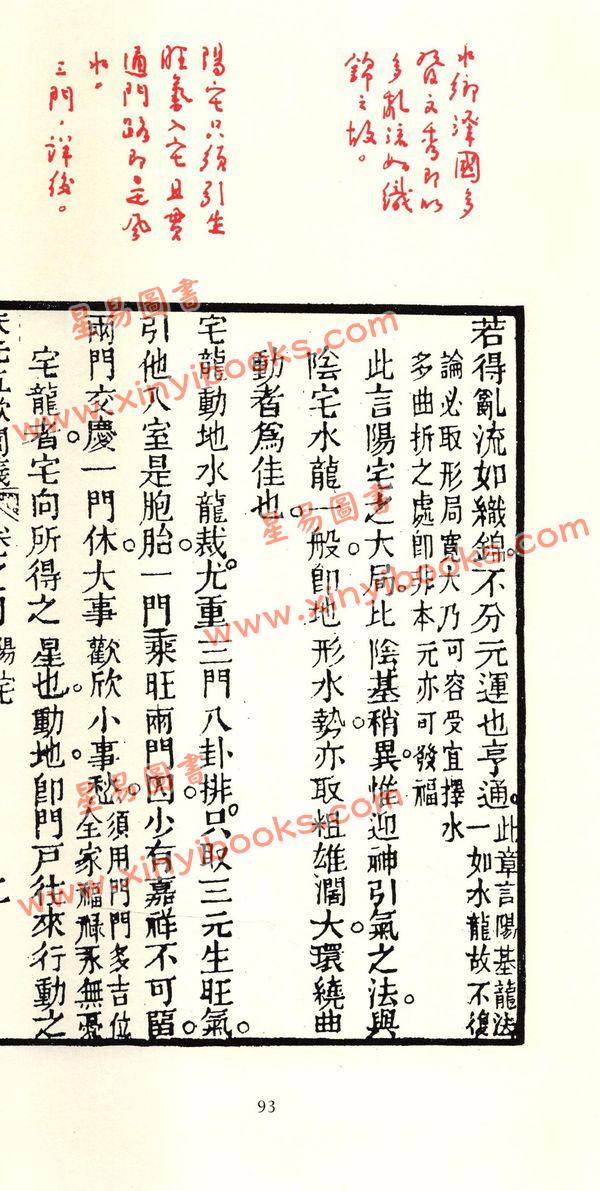 水鄉澤國多
發文秀即以
多亂流如織
錦之故。
陽宅只須引生
旺氣入宅且貫
通門路即是風
水。
三門，詳後。
若得亂流如織錦。不分元運也亨通。此章言陽基龍法
一如水龍故不復
論必取形局寬大乃可容受宜擇水
多曲折之處即非本元亦可發福
此言陽宅之大局。比陰基稍異。惟迎神引氣之法。與
陰宅水龍一般。即地形水勢。亦取粗雄濶大。環繞曲
動者爲佳也。
宅龍動地水龍裁。尤重三門八卦排。只取三元生旺氣。
引他入室是胞胎。一門乘旺兩門囚。少有嘉祥不可留。
兩門交慶一門休。大事歡欣小事愁。須用門門多吉位
全家福祿永無憂
宅龍者。宅向所得之星也。動地即門戶往來行動之
天元五歌闡義 陽宅
星易圖書
www.xinyibooks.com
星易圖書
www.xinyibooks.com
星易圖書
www.xinyibooks.com
93